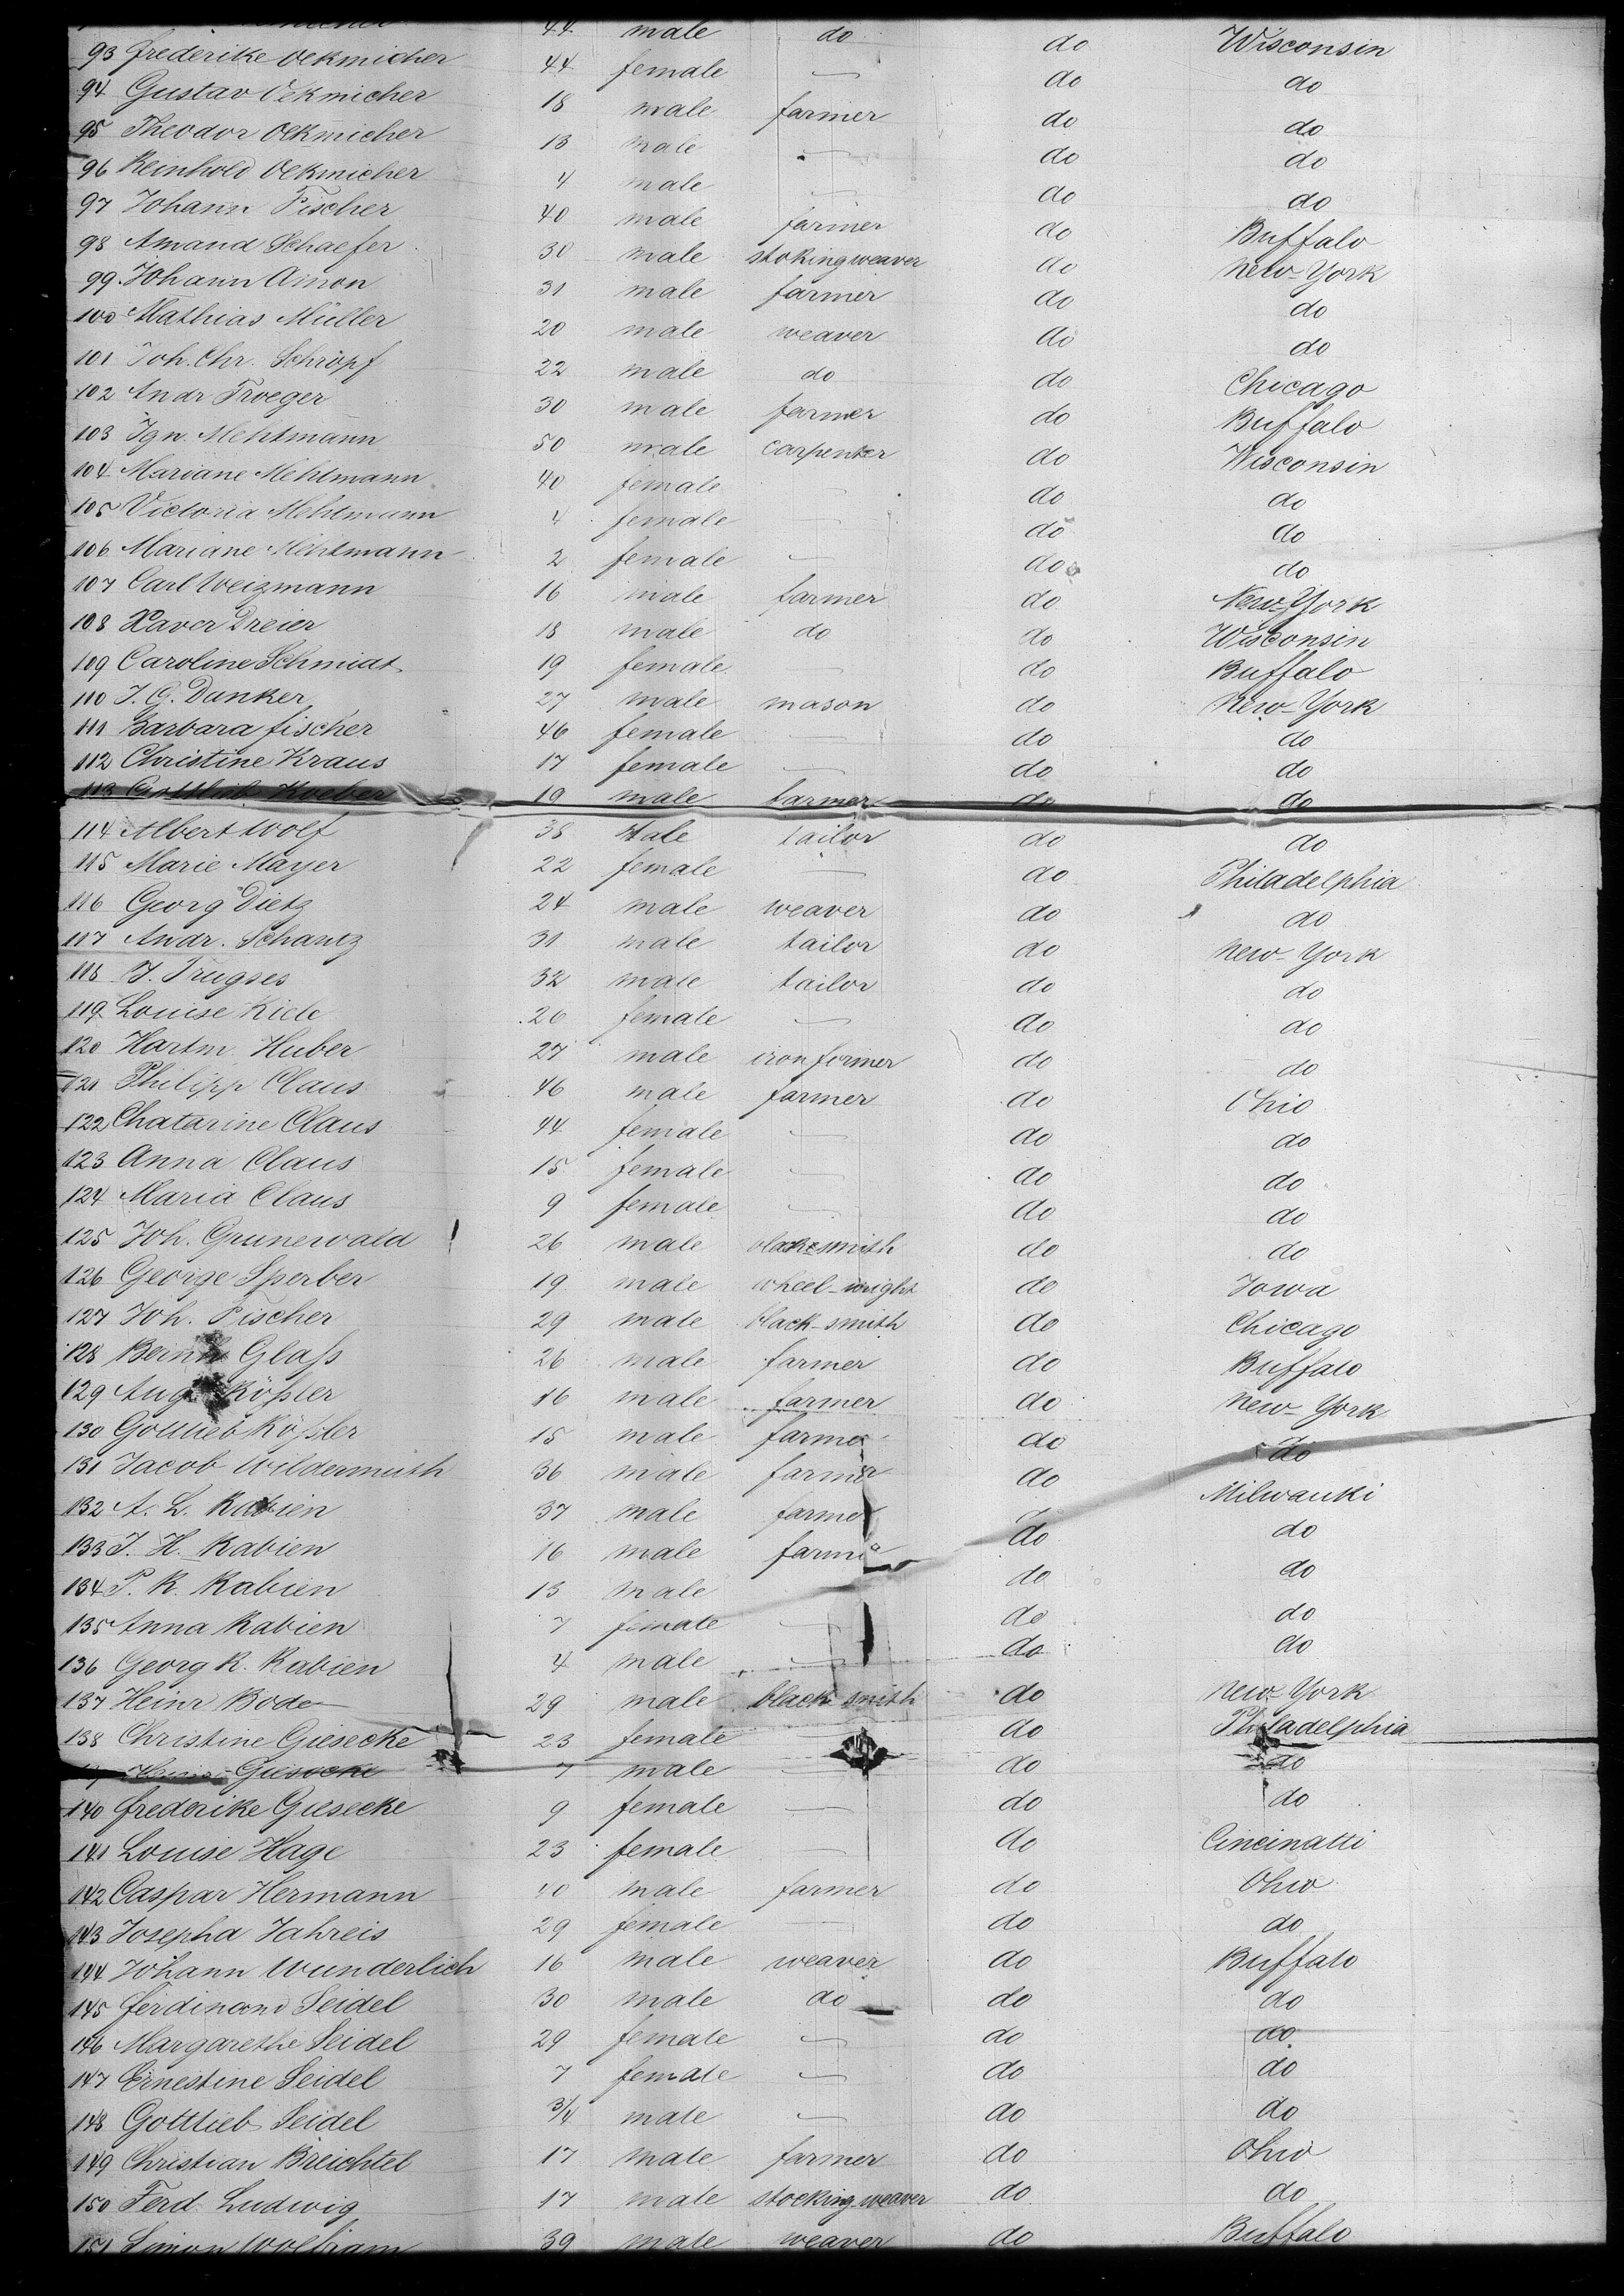 44 male do do Wisconsin
93 Frederike Oekmicher 44 female — do do
94 Gustav Oekmicher 18 male farmer do do
95 Theodor Oekmicher 13 male — do do
96 Reinhold Oekmicher 4 male — do do
97 Johann Fischer 40 male farmer do Buffalo
98 Amand Schaefer 30 male stoking weaver do New-York
99. Johann Amon 31 male farmer do do
100 Mathias Müller 20 male weaver do do
101 Joh. Chr. Schröpf 22 male do do Chicago
102 Andr Troeger 30 male farmer do Buffalo
103 Ign. Mehltmann 50 male carpenter do Wisconsin
104 Mariane Mehltmann 40 female — do do
105 Victoria Mehltmann 4 female — do do
106 Mariane Mehltmann 2 female — do do
107 Carl Weizmann 16 male farmer do New-York
108 Xaver Dreier 18 male do do Wisconsin
109 Caroline Schmidt 19 female — do Buffalo
110 J. G. Dunker 27 male mason do New-York
111 Barbara Fischer 46 female — do do
112 Christine Kraus 17 female — do do
113 Gottlieb Koeber 19 male farmer do do
114 Albert Wolf 38 Male tailor do do
115 Marie Mayer 22 female — do Philadelphia
116 Georg Dietz 24 male weaver do do
117 Andr. Schantz 31 male tailor do New-York
118 J. Trugses 32 male tailor do do
119 Louise Kiele 26 female — do do
120 Hartm. Huber 27 male iron former do do
121 Philipp Claus 46 male farmer do Ohio
122 Chatarine Claus 44 female — do do
123 Anna Claus 15 female — do do
124 Maria Claus 9 female — do do
125 Joh. Grunewald 26 male blacksmith do do
126 George Sperber 19 male wheel-wright do Iowa
127 Joh. Fischer 29 male black-smith do Chicago
128 Bernh Glaß 26 male farmer do Buffalo
129 Aug. Kößler 16 male farmer do New-York
130 Gottlieb Kößler 15 male farmer do do
131 Jacob Wildermuth 36 male farmer do Milwauki
132 A. L. Rabien 37 male farmer do do
133 J. H. Rabien 16 male farmer do do
134 P. R. Rabien 13 male do do
135 Anna Rabien 7 female — do do
136 Georg R. Rabien 4 male — do
137 Heinr Bode 29 male black smith do New-York
138 Christine Giesecke 23 female — do Philadelphia
Giesecke 7 male — do do
140 Frederike Giesecke 9 female — do do
141 Louise Hage 23 female — do Cincinatti
142 Caspar Hermann male farmer do Ohio
143 Josepha Jahreis 29 female — do do
144 Johann Wunderlich 16 male weaver do Buffalo
145 Ferdinand Seidel 30 male do do do
146 Margarethe Seidel 29 female — do do
147 Ernestine Seidel 7 female — do do
148 Gottlieb Seidel 3/4 male — do do
149 Christian Breichtel 17 male farmer do Ohio
150 Ferd. Ludwig 17 male stocking weaver do do
151 Simon Wolfram 39 male weaver do Buffalo